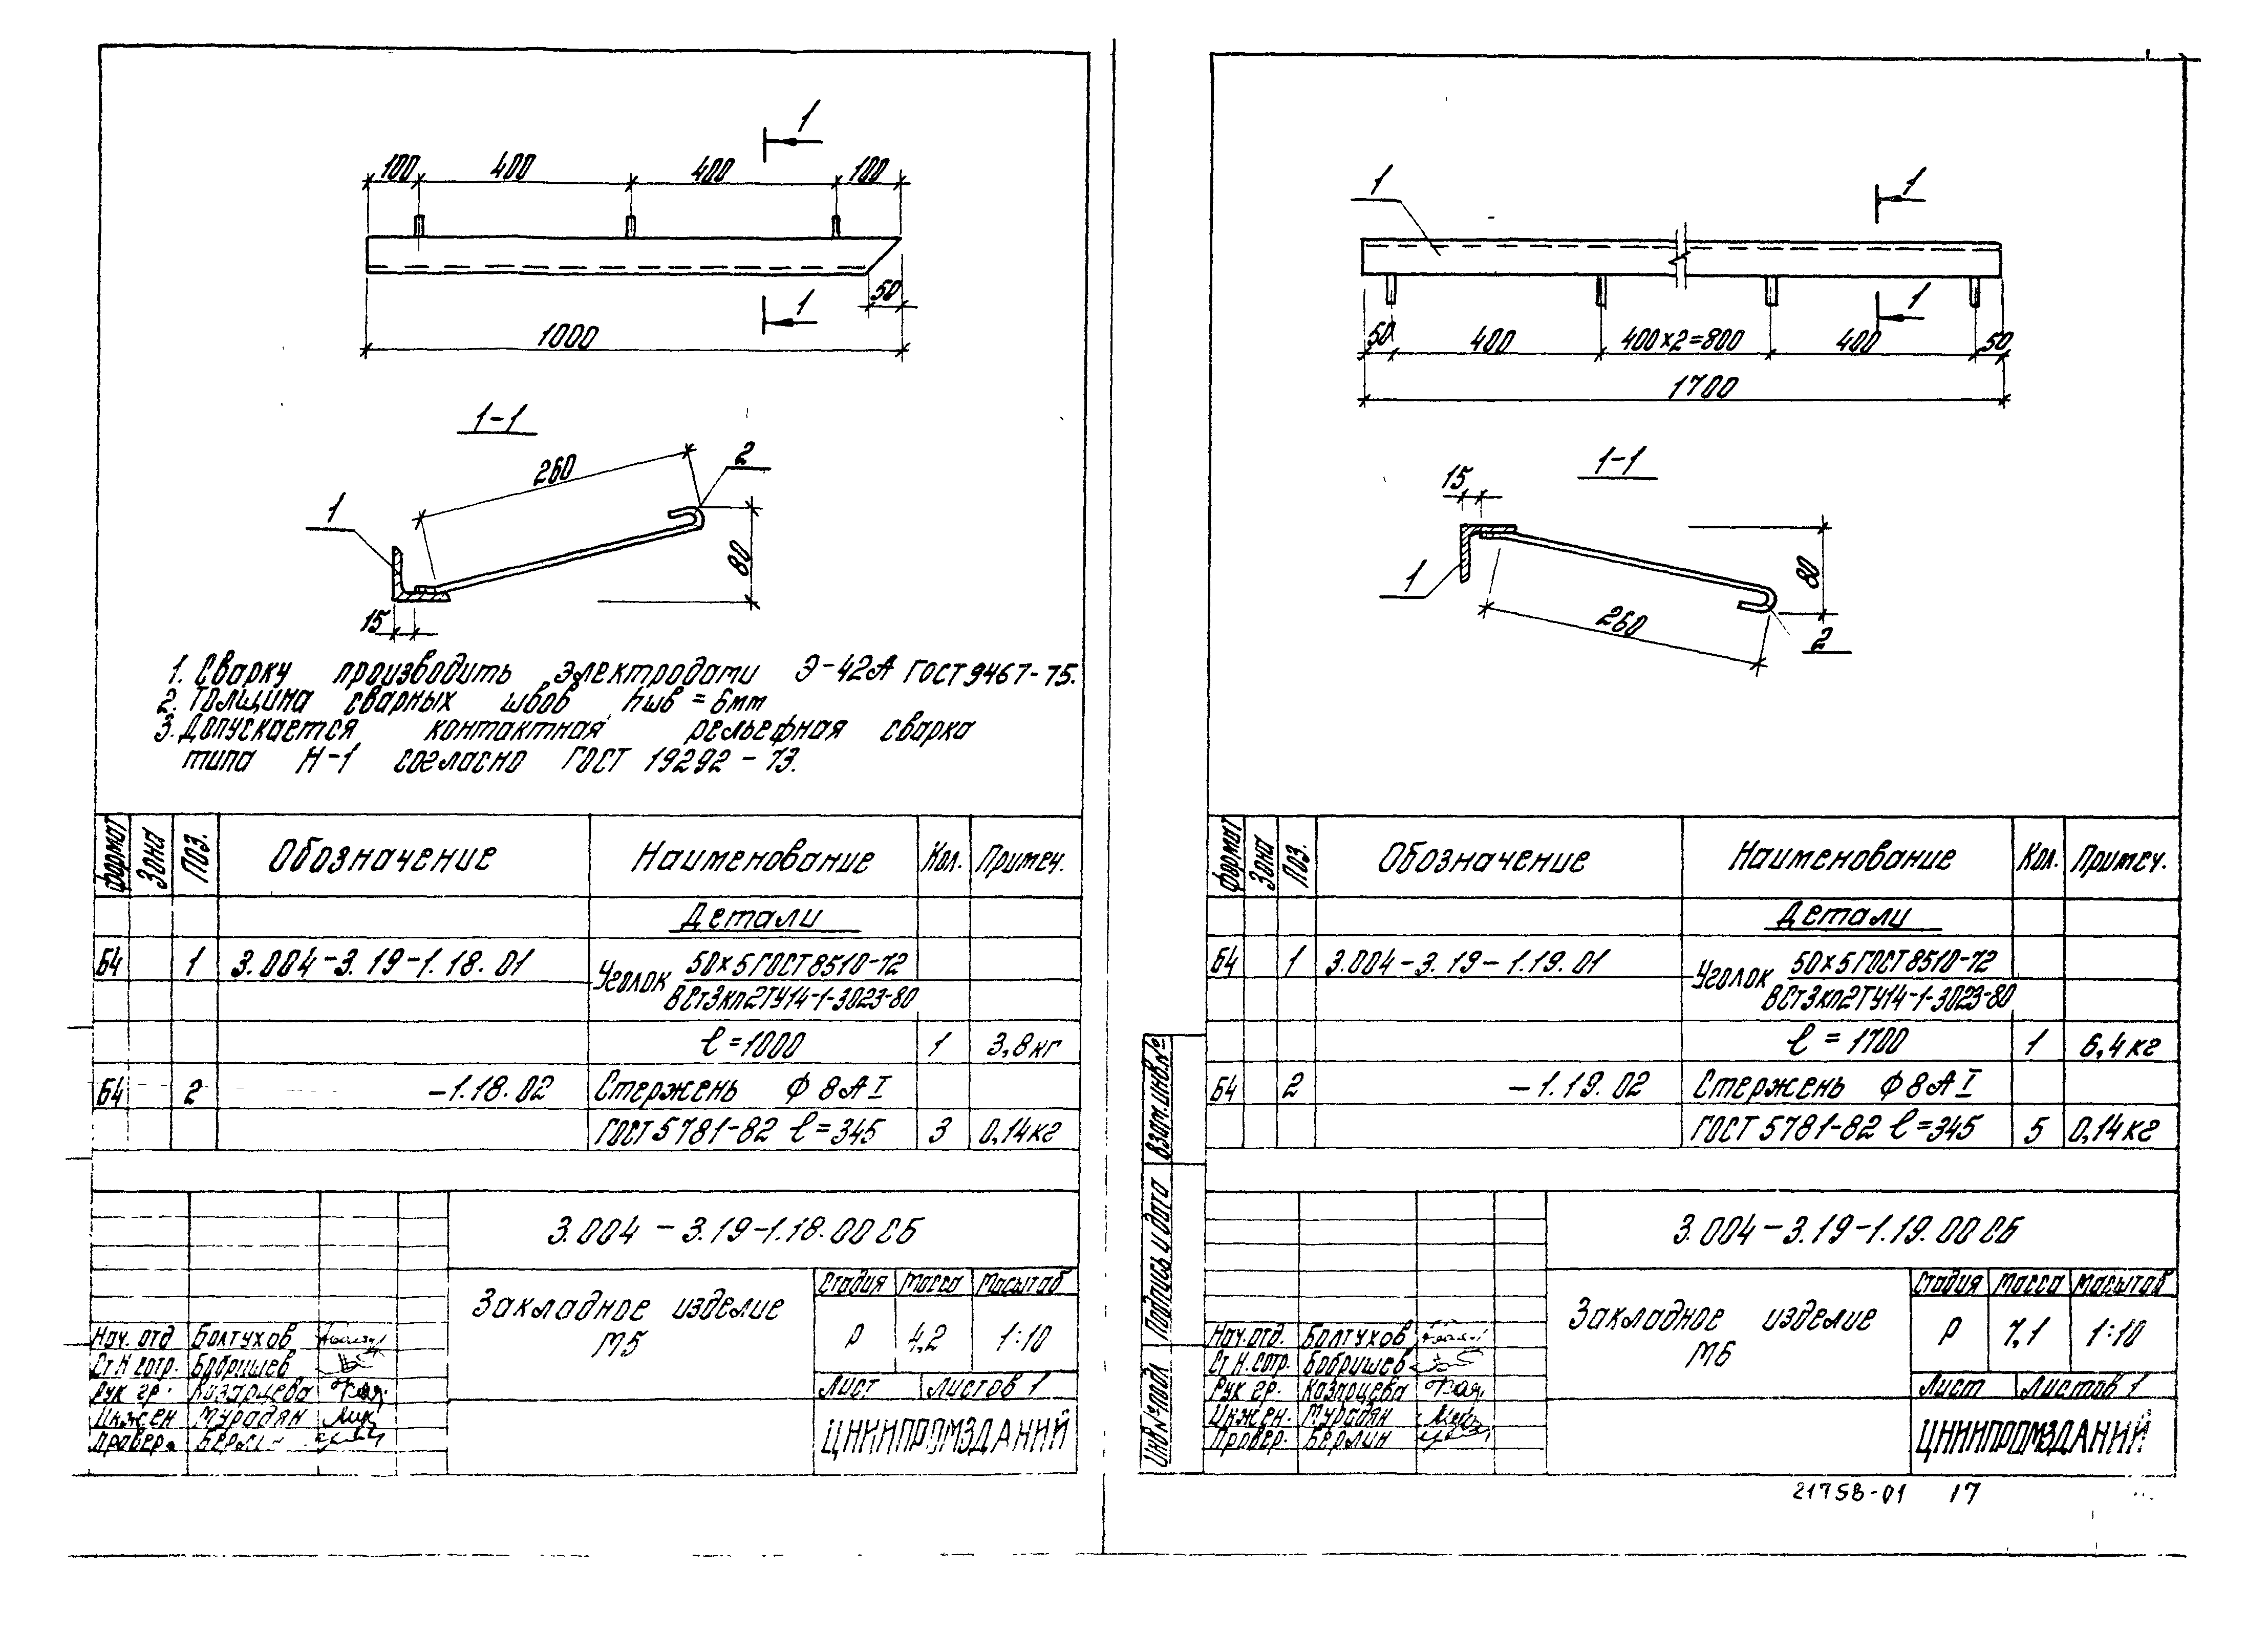 1
100 400 400 100
50
1
1000
1-1
260
2
1
80
15
1. Сварку производить электродами Э-42А ГОСТ 9467-75.
2. Толщина сварных швов hшв = 6мм
3. Допускается контактная рельефная сварка
типа Н-1 согласно ГОСТ 19292-73.
Формат Зона Поз. Обозначение Наименование Кол. Примеч.
Детали
Б4 1 3.004-3.19-1.18.01 Уголок 50×5 ГОСТ 8510-72
ВСт3кп2ТУ14-1-3023-80
ℓ=1000 1 3,8кг
Б4 2 -1.18.02 Стержень Ф 8АI
ГОСТ 5781-82 ℓ=345 3 0,14кг
3.004-3.19-1.18.00 СБ
Закладное изделие
М5
Стадия Масса Масштаб
Р 4,2 1:10
Лист Листов 1
ЦНИИПРОМЗДАНИЙ
Нач. отд Болтухов
Ст Н. сотр. Бобришев
Рук гр. Казарцева
Инжен Мурадян
Провер.
1
1
50 400 400×2=800 400 50
1
1700
1-1
15
80
1
260
2
Формат Зона Поз. Обозначение Наименование Кол. Примеч.
Детали
Б4 1 3.004-3.19-1.19.01 Уголок 50×5 ГОСТ 8510-72
ВСт3кп2ТУ14-1-3023-80
ℓ = 1700 1 6,4кг
Б4 2 -1.19.02 Стержень Ф 8АI
ГОСТ 5781-82 ℓ=345 5 0,14кг
3.004-3.19-1.19.00 СБ
Закладное изделие
М6
Стадия Масса Масштаб
Р 7,1 1:10
Лист Листов 1
ЦНИИПРОМЗДАНИЙ
Нач. отд. Болтухов
Ст Н. сотр. Бобришев
Рук гр. Казарцева
Инжен. Мурадян
Провер. Берлин
Инв № подл Подпись и дата Взам. инв. №
21758-01 17